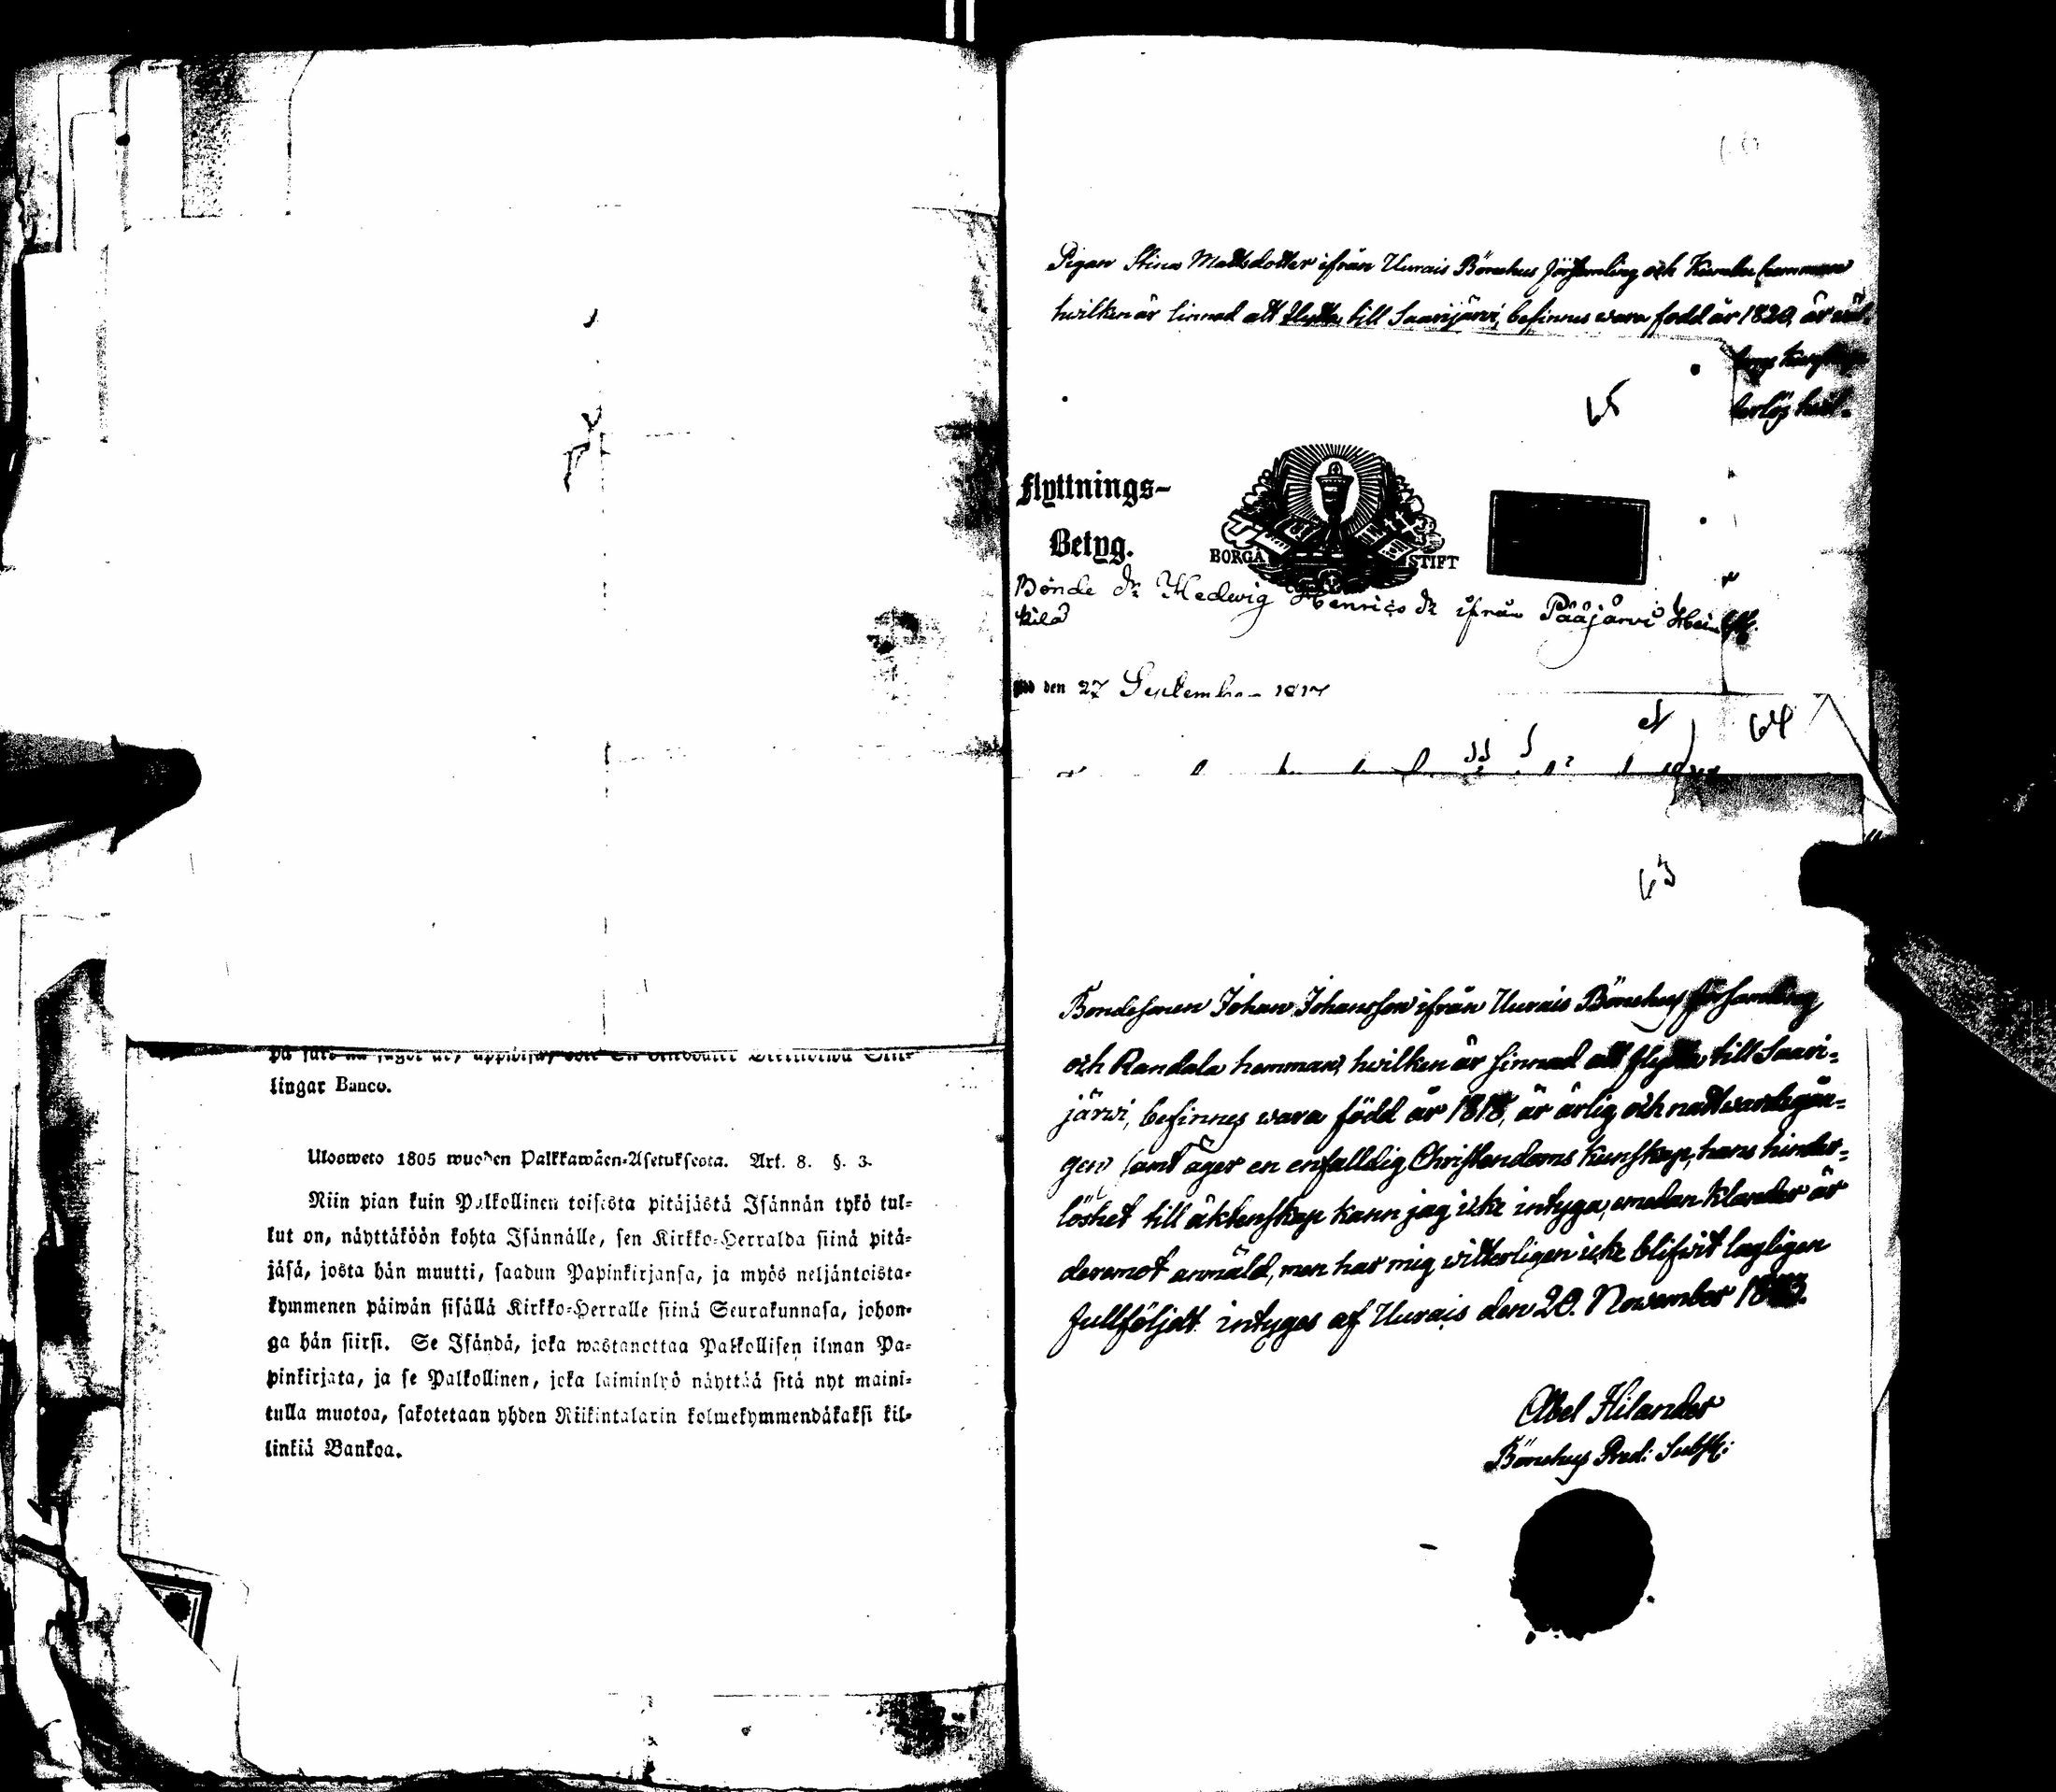 lingar Banco.
Ulosweto 1805 wuoden Palkkawäen-Asetuksesta. Art. 8. §. 3.
Niin pian kuin Palkollinen toisesta pitäjästä Isännän tykö tul-
lut on, näyttäköön kohta Isännälle, sen Kirkko-Herralda siinä pitä-
jäsä, josta hän muutti, saadun Papinkirjansa, ja myös neljäntoista-
kymmenen päiwän sisällä Kirkko-Herralle siinä Seurakunnasa, johon-
ga hän siirsi. Se Isändä, joka wastanottaa Palkollisen ilman Pa-
pinkirjata, ja se Palkollinen, joka laiminlyö näyttää sitä nyt maini-
tulla muotoa, sakotetaan yhden Riikintalarin kolmekymmendäkaksi kil-
linkiä Bankoa.
Pigan Stina Mattsdotter ifrån Uurais Bönehus församling och hemman
hwilken är sinnad att flytta till Saarijärvi, befinnes wara född år 1820, är
65
Flyttnings-
Betyg.
BORGÅ STIFT
Bonde dr Hedwig Henrics dr ifrån Pääjärvi
kilä
den 27 September 1817
64
63
Bondesonen Johan Johansson ifrån Uurais Bönehus församling
och Randala hemman, hwilken är sinnad att flytta till Saari-
järwi, befinnes wara född år 1818, är ärlig och nattwardsgån-
gen samt äger en enfalldig Christendoms kunskap, hans hinder-
löshet till äktenskap kann jag icke intyga, emedan klander är
deremot anmäld, men har mig witterligen icke blifwit lagligen
fullföljdt. intyges af Uurais den 20. November
Abel Hilander
Bönehus Pred: Subst: